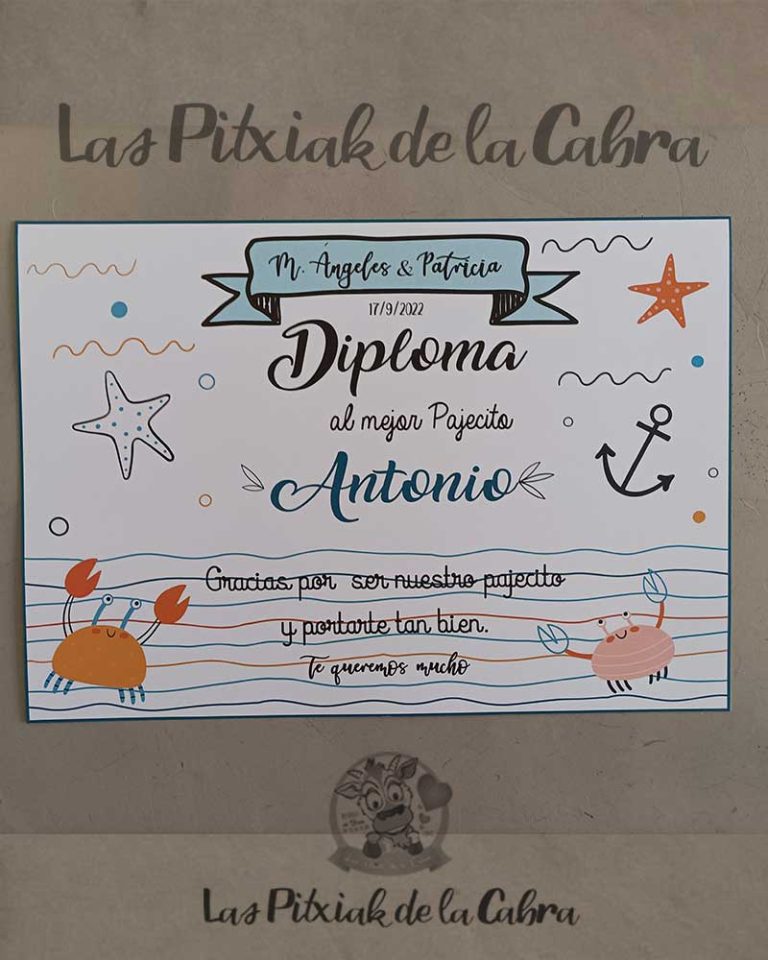 Las Pitxiak de la Cabra
M. Ángeles & Patricia
17/9/2022
Diploma
al mejor Pajecito
Antonio
Gracias por ser nuestro pajecito
y portarte tan bien.
Te queremos mucho
Las Pitxiak de la Cabra